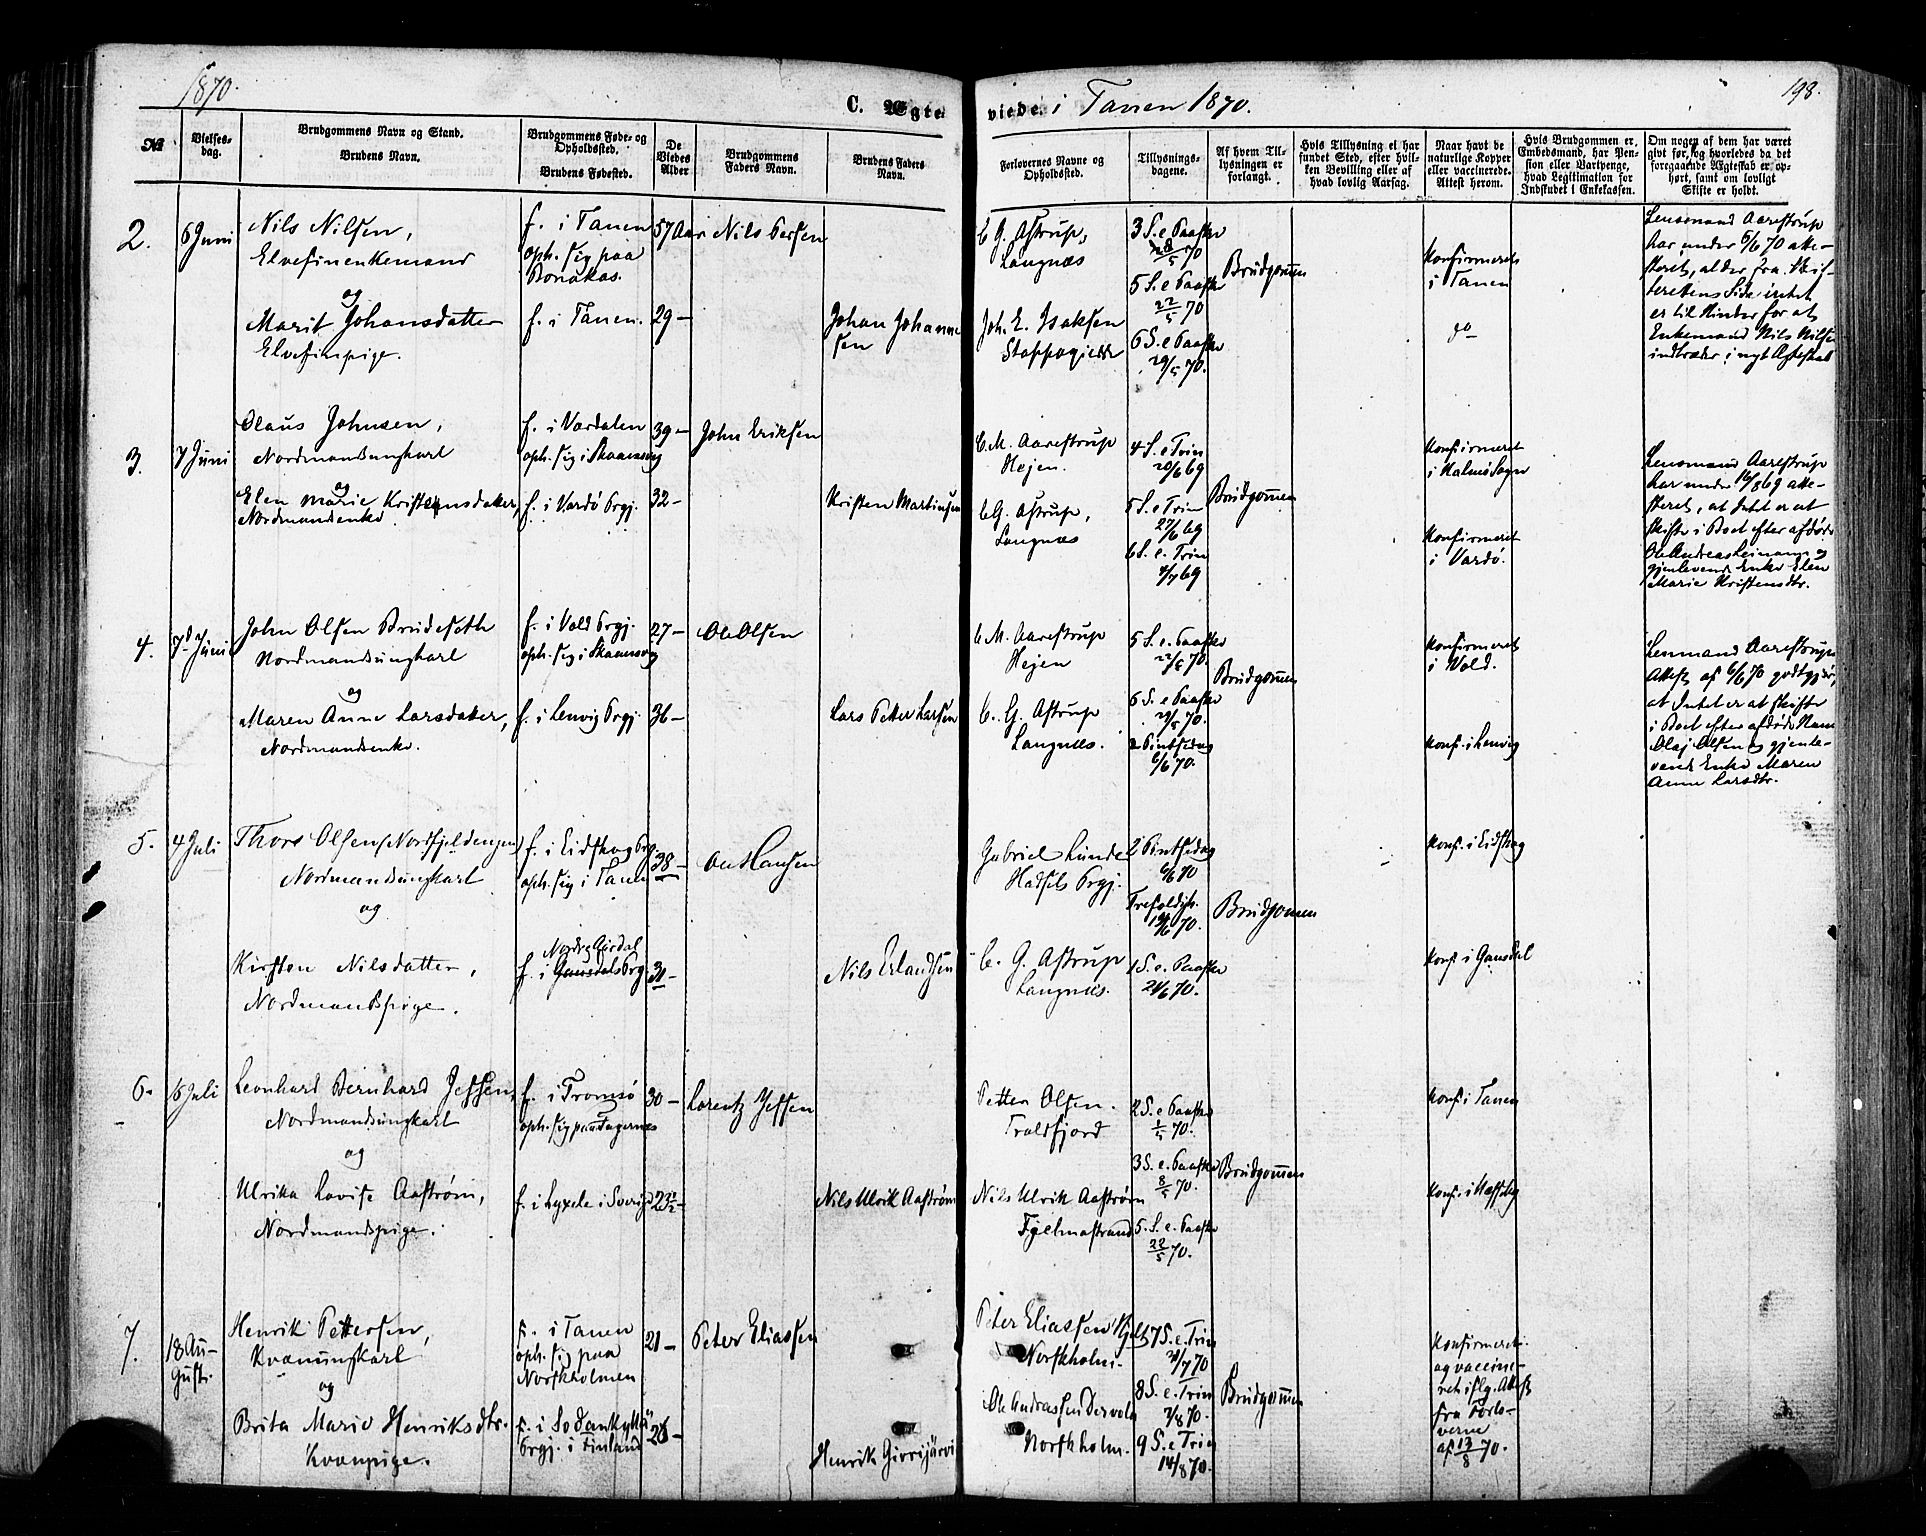 1870.
C. Ægte
viede i Tanen 1870.
198.
№
Vielses-
dag.
Brudgommens Navn og Stand.
Brudens Navn.
Brudgommens Føde- og
Opholdssted.
Brudens Fødested.
De
Viedes
Alder
Brudgommens
Faders Navn.
Brudens Faders
Navn.
Forlovernes Navne og
Opholdssted.
Tillysnings-
dagene.
Af hvem Til-
lysningen er
forlangt.
Hvis Tillysning ei har
fundet Sted, efter hvil-
ken Bevilling eller af
hvad lovlig Aarsag.
Naar havt de
naturlige Kopper
eller vaccinerede.
Attest herom.
Hvis Brudgommen er
Embedsmand, har Pen-
sion eller Vartpenge,
hvad Legitimation for
Indskudet i Enkekassen.
Om nogen af dem har været
givt før, og hvorledes da det
foregaaende Ægteskab er op-
hørt, samt om lovligt
Skifte er holdt.
2.
6 Juni
Nils Nilsen,
Elvefinenkemand
og
Marit Johansdatter
Elvefinpige.
f. i Tanen
oph. sig paa
Bonakas.
f. i Tanen.
57 Aar
29 –
Nils Persen
Johan Johanne
sen
C G. Astrup,
Langnæs
Joh. E. Isaksen
Stappogiedde
3 S. e Paaske
8/5 70
5 S. e Paaske
22/5 70
6 S. e Paaske
29/5 70.
Brudgommen
Konfirmeret
i Tanen
do
Lensmand Aarestrup
har under 6/6 70 atte-
steret, at der fra Skif-
terettens Side intet
er til Hinder for at
Enkemand Nils Nilsen
indtræder i nyt Ægteskab
3.
7 Juni
Olaus Johnsen,
Nordmandsungkarl
og
Elen Marie Kristensdatter,
Nordmandsenke
f. i Værdalen
oph. sig i Skaanevg
f. i Vardø Prgj.
39 –
32 –
John Eriksen
Kristen Martinsen
C M. Aarestrup
Hejen.
C G. Astrup,
Langnæs
4 S. e Trin
20/6 69
5 S. e Trin
27/6 69
6 S. e. Trin
4/7 69
Brudgommen
Konfirmeret
i Malmø Sogn
Konfirmeret
i Vardø.
Lensmand Aarestrup
har under 16/8 69 atte-
steret, at Intet er at
skifte i Boet efter afdøde
Ole Andreas Leinan og
gjenlevende Enke Elen
Marie Kristensdtr.
4.
7d Juni
John Olsen Brudeseth
Nordmandsungkarl
og
Maren Anne Larsdatter,
Nordmandsenke.
f. i Vold Prgj.
oph. sig i Skaanevg
f. i Lenvig Prgj.
27 –
36 –
Ole Olsen
Lars Petter Larsen
C M. Aarestrup
Hejen
C. G. Astrup
Langnæs.
5 S. e. Paaske
22/5 70.
6 S. e Paaske
29/5 70.
2 Pintsedag
6/6 70.
Brudgommen
Konfirmeret
i Vold.
Konf. i Lenvig
Lensmand Aarestrups
Attest af 6/6 70 godtgjør,
at Intet er at skifte
i Boet efter afdøde Hans
Olaj Olsen og gjenle-
vende Enke Maren
Anne Larsdtr.
5.
4 Juli
Thore Olsen (Nordfjeldengen)
Nordmandsungkarl
og
Kirsten Nilsdatter,
Nordmandspige.
f. i Eidskog Prg.
oph. sig i Tanen
Nordre Girdal
f. i Gausdals Prg.
38 –
31 –
Ole Hansen
Nils Erlandsen
Gabriel Lunde
Hadsels Prgj.
C. G. Astrup
Langnæs.
2 Pintsedag
6/6 70
Trefoldigh.
12/6 70.
1 S. e. Paaske
24/6 70.
Brudgommen
Konf. i Eidskog
Konf. i Gausdal
6.
6 Juli
Leonhard Bernhard Jessen,
Nordmandsungkarl
og
Ulrika Lovise Aastrøm,
Nordmandspige.
f. i Tromsø
oph. sig paa Fagernes
f. i Lyxele i Sverig
30 –
23½ –
Lorentz Jessen
Nils Ulrik Aastrøm
Petter Olsen.
Troldfjord
Nils Ulrik Aastrøm
Fjelmastrand
2 S. e Paaske
1/5 70.
3 S. e. Paaske
8/5 70.
5. S. e. Paaske
22/5 70.
Brudgommen
Konf. i Tanen
Konf. i Næsseby
7.
18 Au-
gust.
Henrik Pettersen,
Kvænungkarl
og
Brita Marie Henriksdtr.
Kvænpige.
f. i Tanen
oph. sig paa
Norskholmen
f. i Sodankylä
Prgj. i Finland
21 –
26 –
Peter Eliassen
Henrik Girrijärvi
Peter Eliassen
Norskholm.
Ole Andrassen
Norskholm.
7 S. e. Trin
31/7 70
8 S. e. Trin
7/8 70.
9 S. e Trin
14/8 70.
Brudgommen
Konfirmeret
og vaccine-
ret iflg. Attest
fra Forlo-
verne
af 13/8 70.